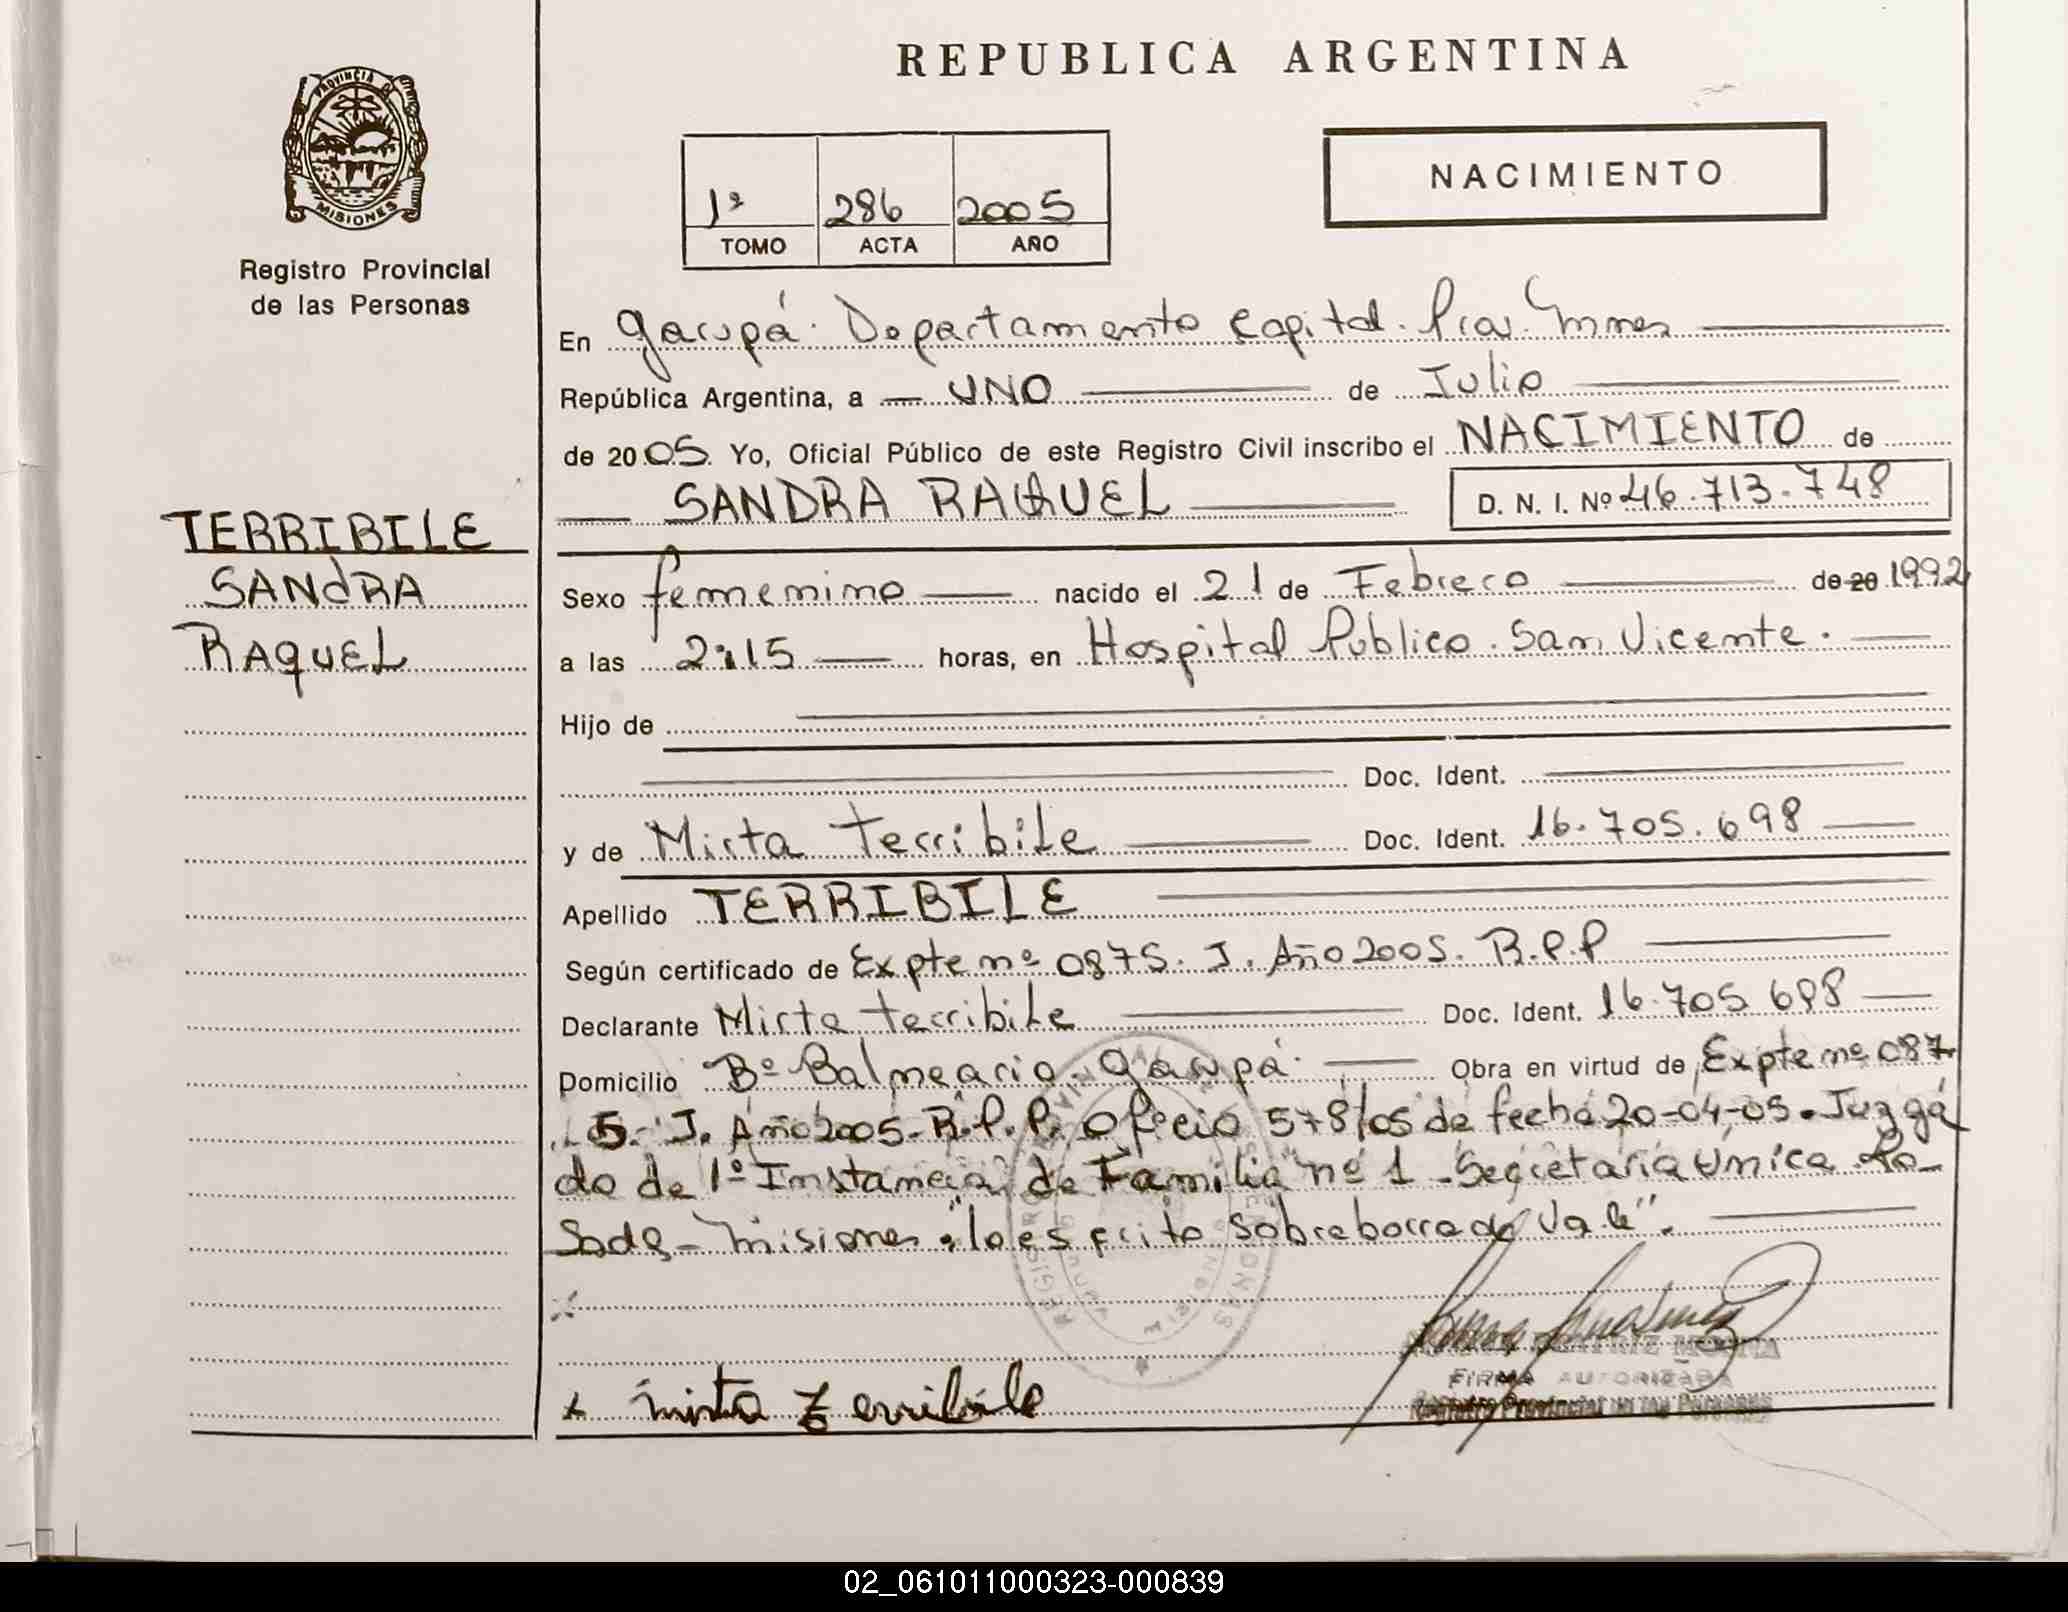 REPUBLICA ARGENTINA
PROVINCIA DE
MISIONES
Registro Provincial
de las Personas
1º 286 2005
TOMO ACTA AÑO
NACIMIENTO
En Garupá. Departamento Capital. Prov. Mnes
República Argentina, a UNO de Julio
de 2005 Yo, Oficial Público de este Registro Civil inscribo el NACIMIENTO de
SANDRA RAQUEL D. N. I. Nº 46.713.748
TERRIBILE
SANdRA
RAqUEL
Sexo femenino nacido el 21 de Febrero de 20 1992
a las 2:15 horas, en Hospital Público. San Vicente.
Hijo de
Doc. Ident.
y de Mirta Terribile Doc. Ident. 16.705.698
Apellido TERRIBILE
Según certificado de Expte nº 0875. J. Año 2005. R.P.P
Declarante Mirta terribile Doc. Ident. 16.705 698
Domicilio Bº Balneario. Garupá. Obra en virtud de Expte nº 087
5. J. Año 2005. R.P.P. Oficio 578/05 de fecha 20-04-05. Juzga
do de 1º Instancia de Familia nº 1 - Secretaria Unica. Po-
sadas - Misiones "lo escrito sobreborrado Vale".
mirta terribile
FIRMA AUTORIZADA
Registro Provincial de las Personas
02_061011000323-000839